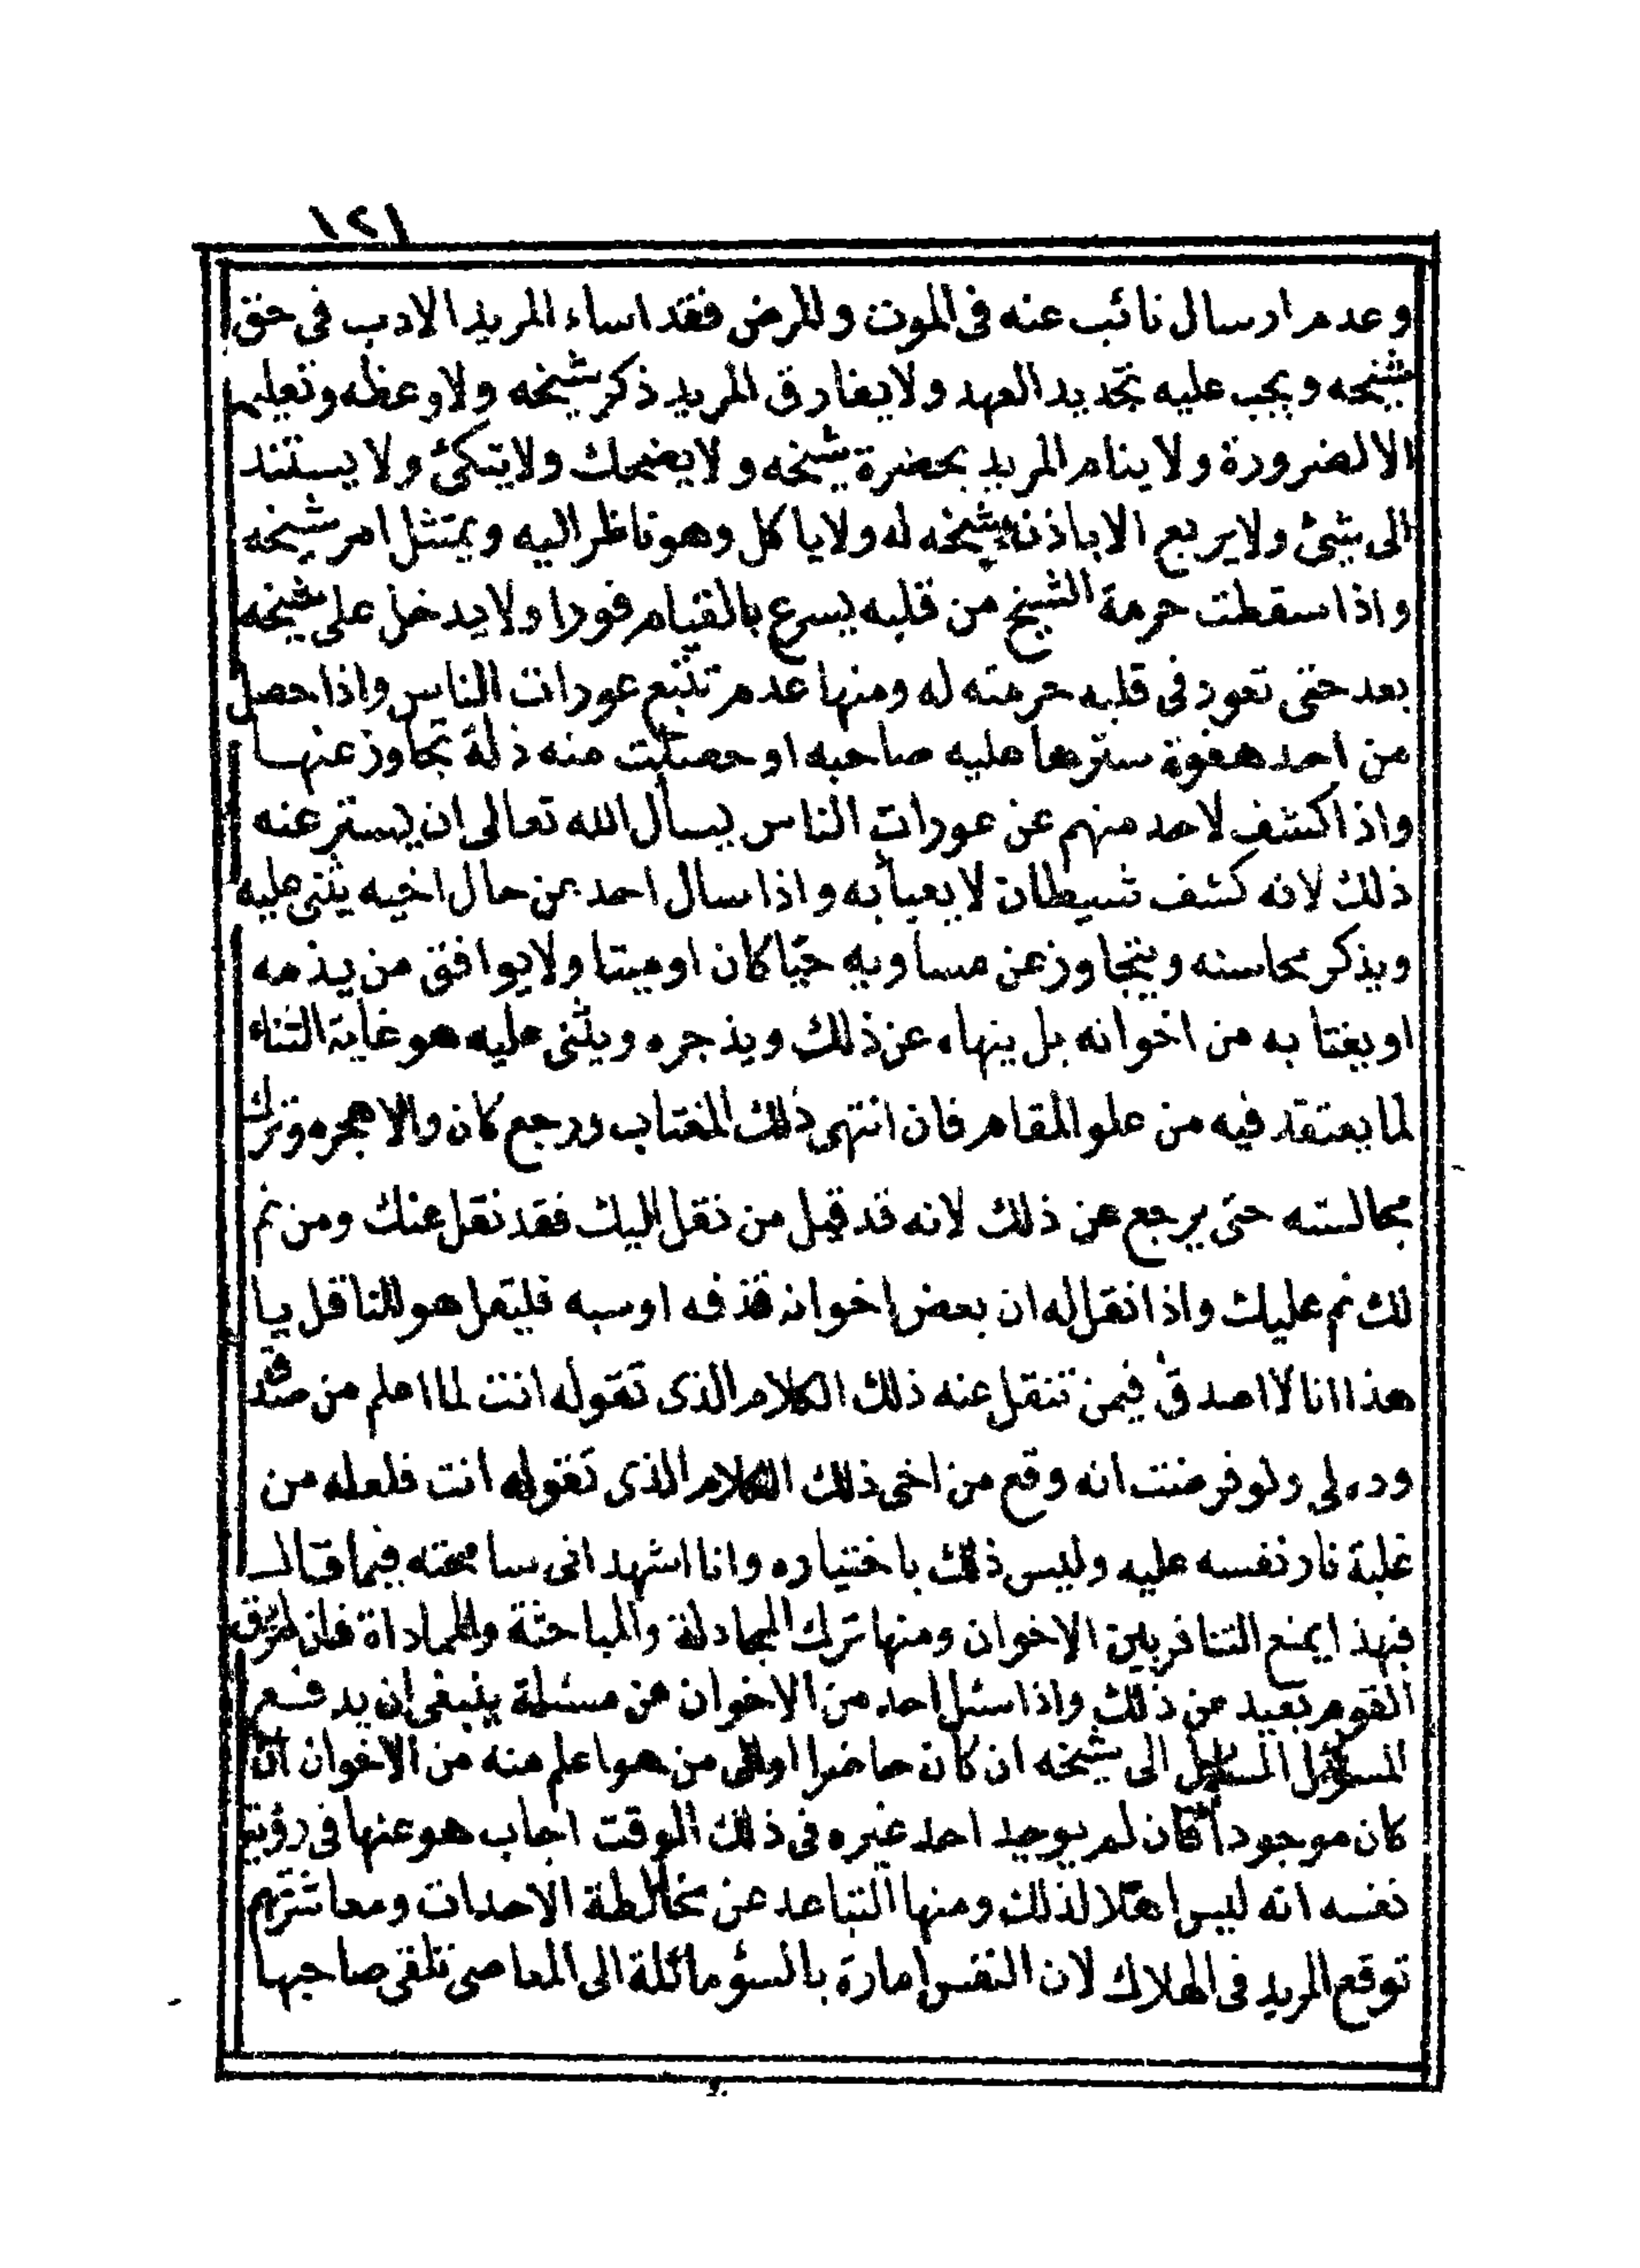 ١٢١
وعدم ارسال نائب عنه فى الموت والمرض فقد اساء المريد الادب فى حق
شيخه ويجب عليه تجديد العهد ولا يفارق المريد ذكر شيخه ولا وعظه وتعليم
الا لضرورة ولا ينام المريد بحضرة شيخه ولا يضحك ولا يتكئ ولا يستند
الى شئ ولا يربع الا باذنه شيخه له ولا ياكل وهو ناظر اليه ويمتثل امر شيخه
واذا سقطت حرمة الشيخ من قلبه يسرع بالقيام فورا ولا يدخل على شيخه
بعد حتى تعود فى قلبه حرمته له ومنها عدم تتبع عورات الناس واذا حصل
من احد هفوة سترها عليه صاحبه او حصلت منه ذلة تجاوز عنها
واذا كشف لاحد منهم عن عورات الناس يسأل الله تعالى ان يستر عنه
ذلك لانه كشف شيطان لا يعبأ به واذا سال احد عن حال اخيه يثنى عليه
ويذكر محاسنه ويتجاوز عن مساويه حيا كان او ميتا ولا يوافق من يذمه
او يغتابه من اخوانه بل ينهاه عن ذلك ويذجره ويثنى عليه هو غاية الثناء
لما يعتقد فيه من علو المقام فان انتهى ذلك المغتاب ورجع كان والا هجره وترك
مجالسته حتى يرجع عن ذلك لانه قد قيل من نقل اليك فقد نقل عنك ومن نم
لك نم عليك واذا نقل له ان بعض اخوانه قذفه او سبه فليقل هو للناقل يا
هذا انا لا اصدق فيمن تنقل عنه ذلك الكلام الذى تقوله انت لما اعلم من صدق
وده لى ولو فرضت انه وقع من اخى ذلك الكلام الذى تقوله انت فلعله من
غلبة نار نفسه عليه وليس ذلك باختياره وانا اشهد انى سامحته فيما قال
فهذا يمنع التنافر بين الاخوان ومنها ترك المجادلة والمباحثة والمماداة فان طريق
القوم بعيد عن ذلك واذا سئل احد من الاخوان عن مسئلة ينبغى ان يدفع
المسؤل السائل الى شيخه ان كان حاضرا او الى من هو اعلم منه من الاخوان ان
كان موجودا فان لم يوجد احد غيره فى ذلك الوقت اجاب هو عنها فى رؤية
نفسه انه ليس اهلا لذلك ومنها التباعد عن مخالطة الاحداث ومعاشرتهم
توقع المريد فى الهلاك لان النفس امارة بالسؤ مائلة الى المعاصى تلقى صاحبها